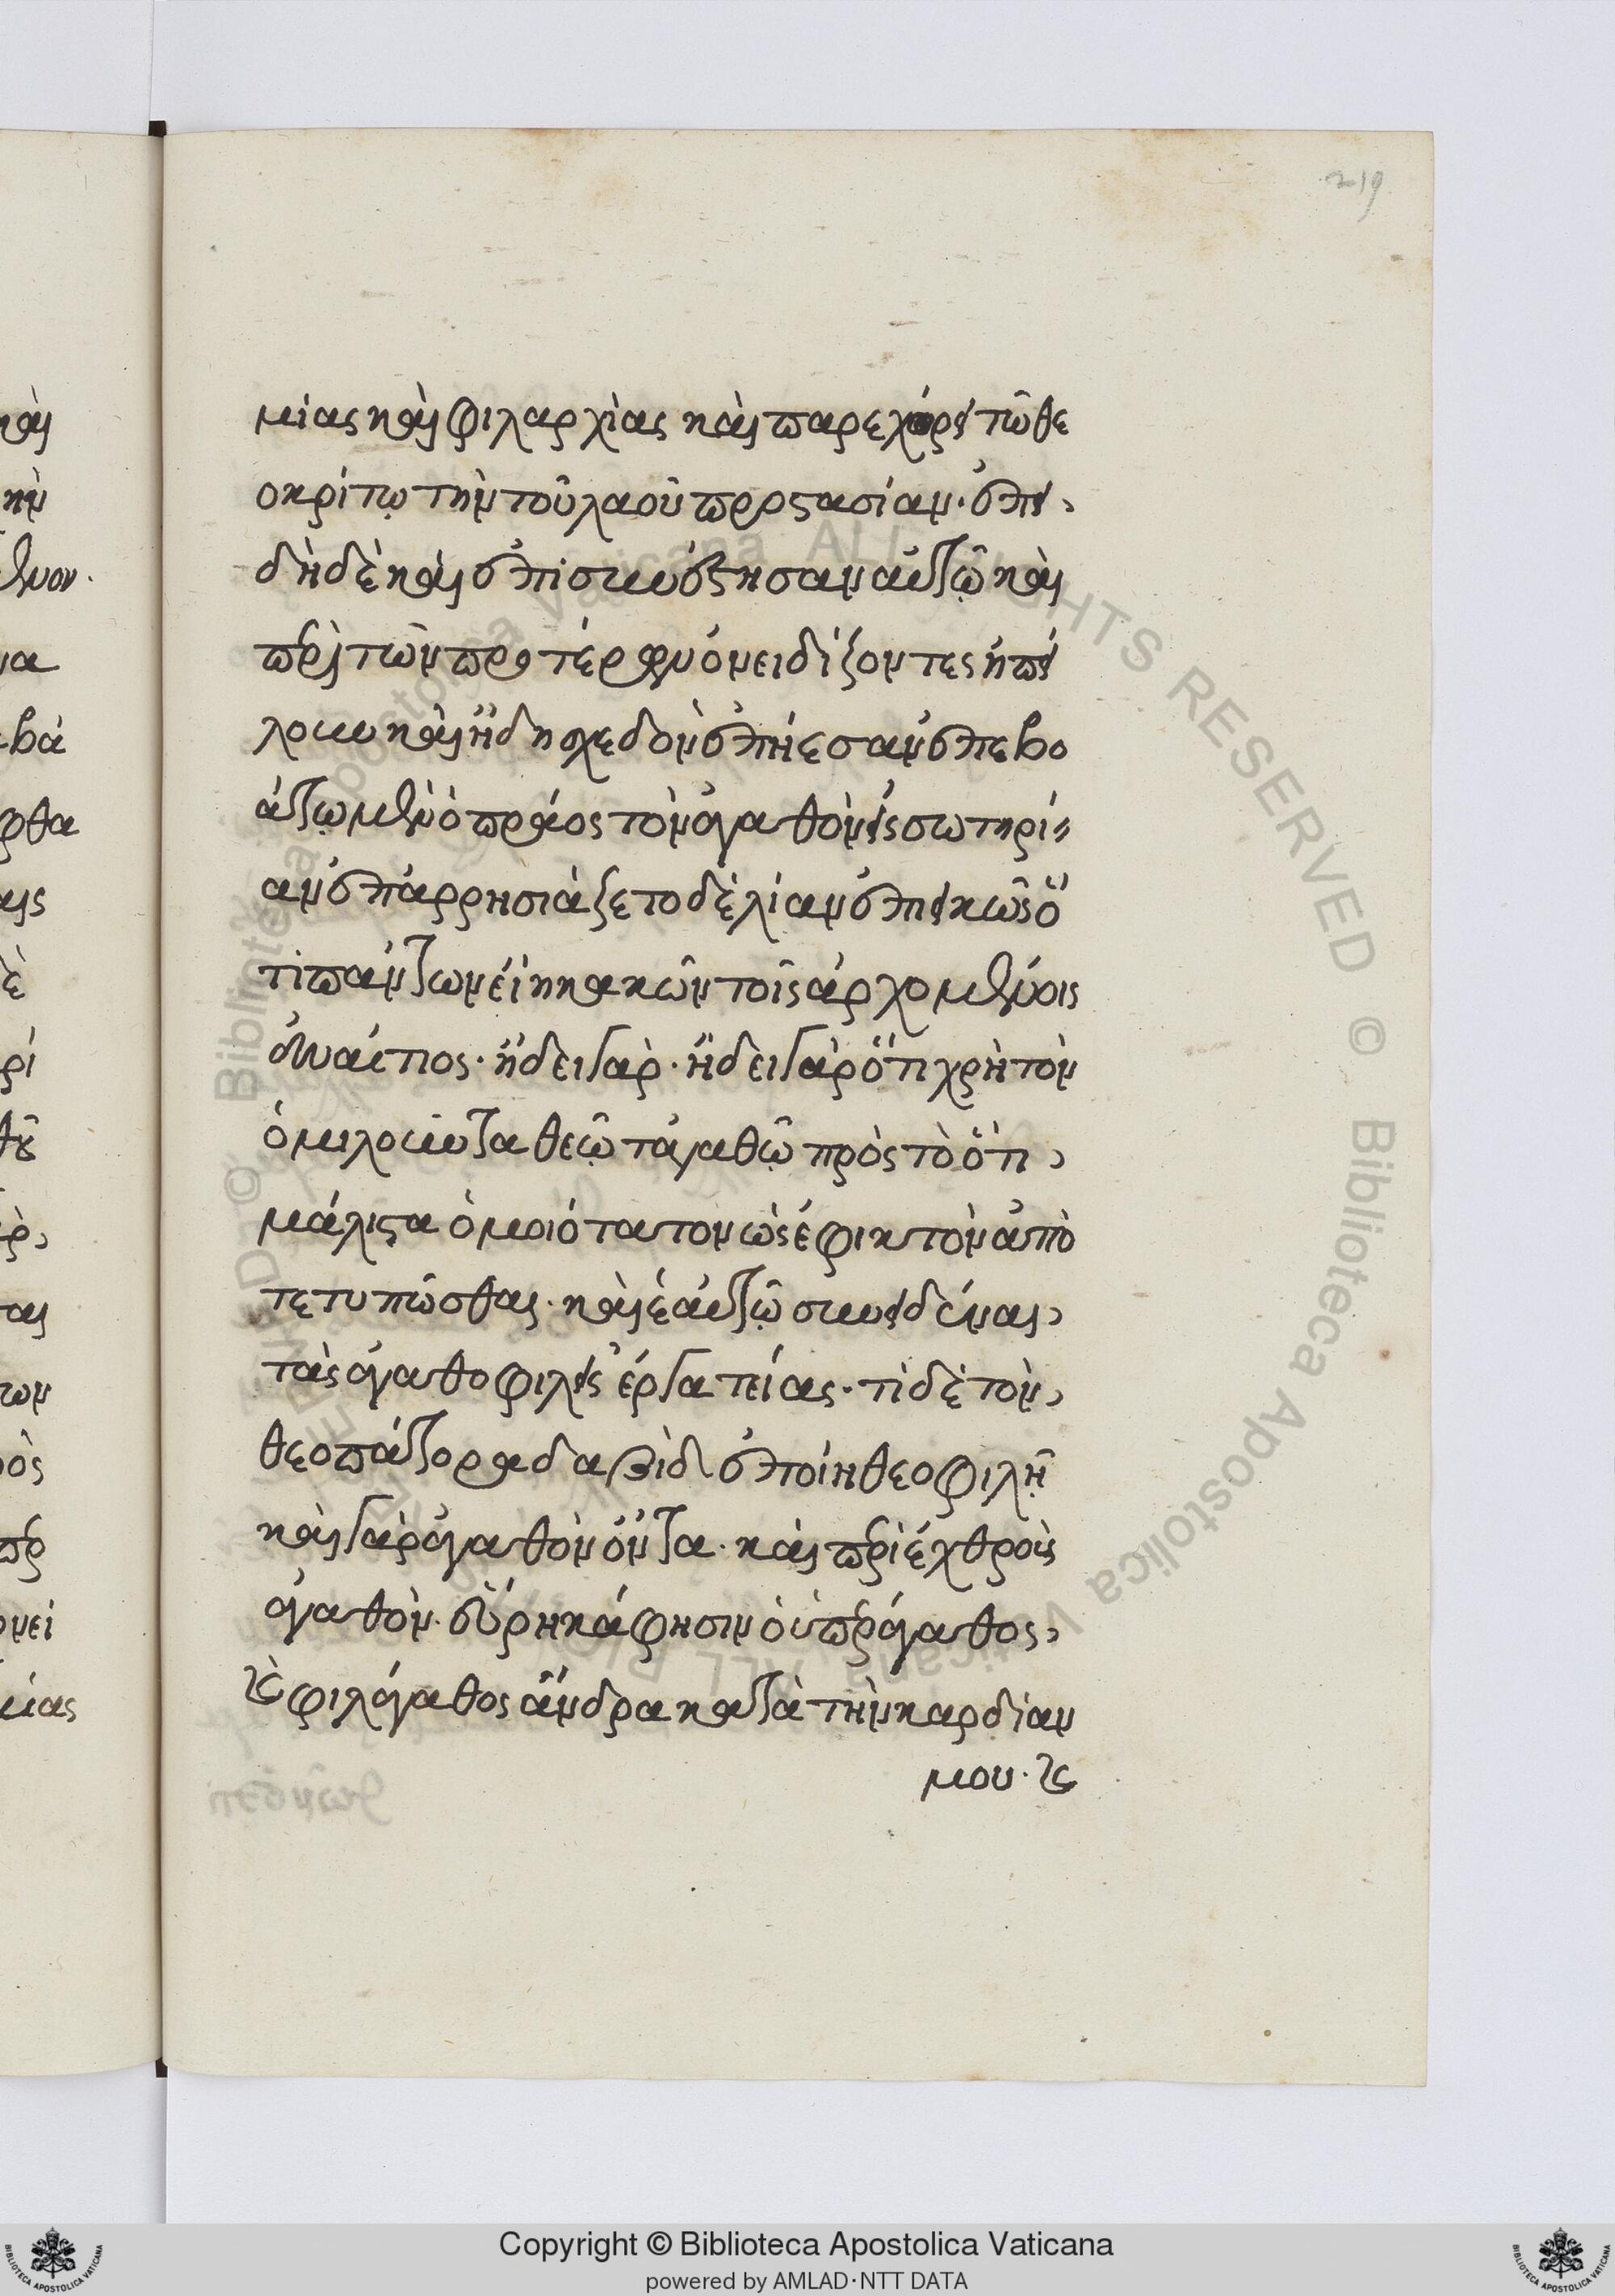 219
μίας καὶ φιλαρχίας καὶ παρεχώρει τῶ θε
οκρίτῳ τὴν τοῦ λαοῦ προστασίαν· ἐπει
δὴ δὲ καὶ ἐπισυνέστησαν αὐτῷ καὶ
περὶ τῶν προτέρων ὀνειδίζοντες ἠπεί
λουν καὶ ἤδη σχεδὸν ἐπήεσαν ἐπεβο
άτω μὲν ὁ πράος τὸν ἀγαθὸν εἰς σωτηρί
αν ἐπαρρησιάζετο δὲ λίαν ἐπιεικῶς ὅ
τι πάντων εἴη κακῶν τοῖς ἀρχομένοις
ἀναίτιος· ἤδει γὰρ· ἤδει γὰρ ὅτι χρὴ τὸν
ὁμιλοῦντα θεῷ τἀγαθῷ πρὸς τὸ ὅτι
μάλιστα ὁμοιότατον ὡς ἐφικτὸν ἀπο
τετυπῶσθαι· καὶ ἑαυτῷ συνειδέναι
τὰς ἀγαθοφιλεῖς ἐργατείας· τί δὲ τὸν
θεοπάτορα δαβὶδ ἐποίη θεοφιλῆ
καὶ γὰρ ἀγαθὸν ὄντα· καὶ περὶ ἐχθροὺς
ἀγαθὸν· εὕρηκά φησιν ὁ ὑπεράγαθος
καὶ φιλάγαθος ἄνδρα κατὰ τὴν καρδίαν
μου· καὶ
Copyright © Biblioteca Apostolica Vaticana
powered by AMLAD·NTT DATA